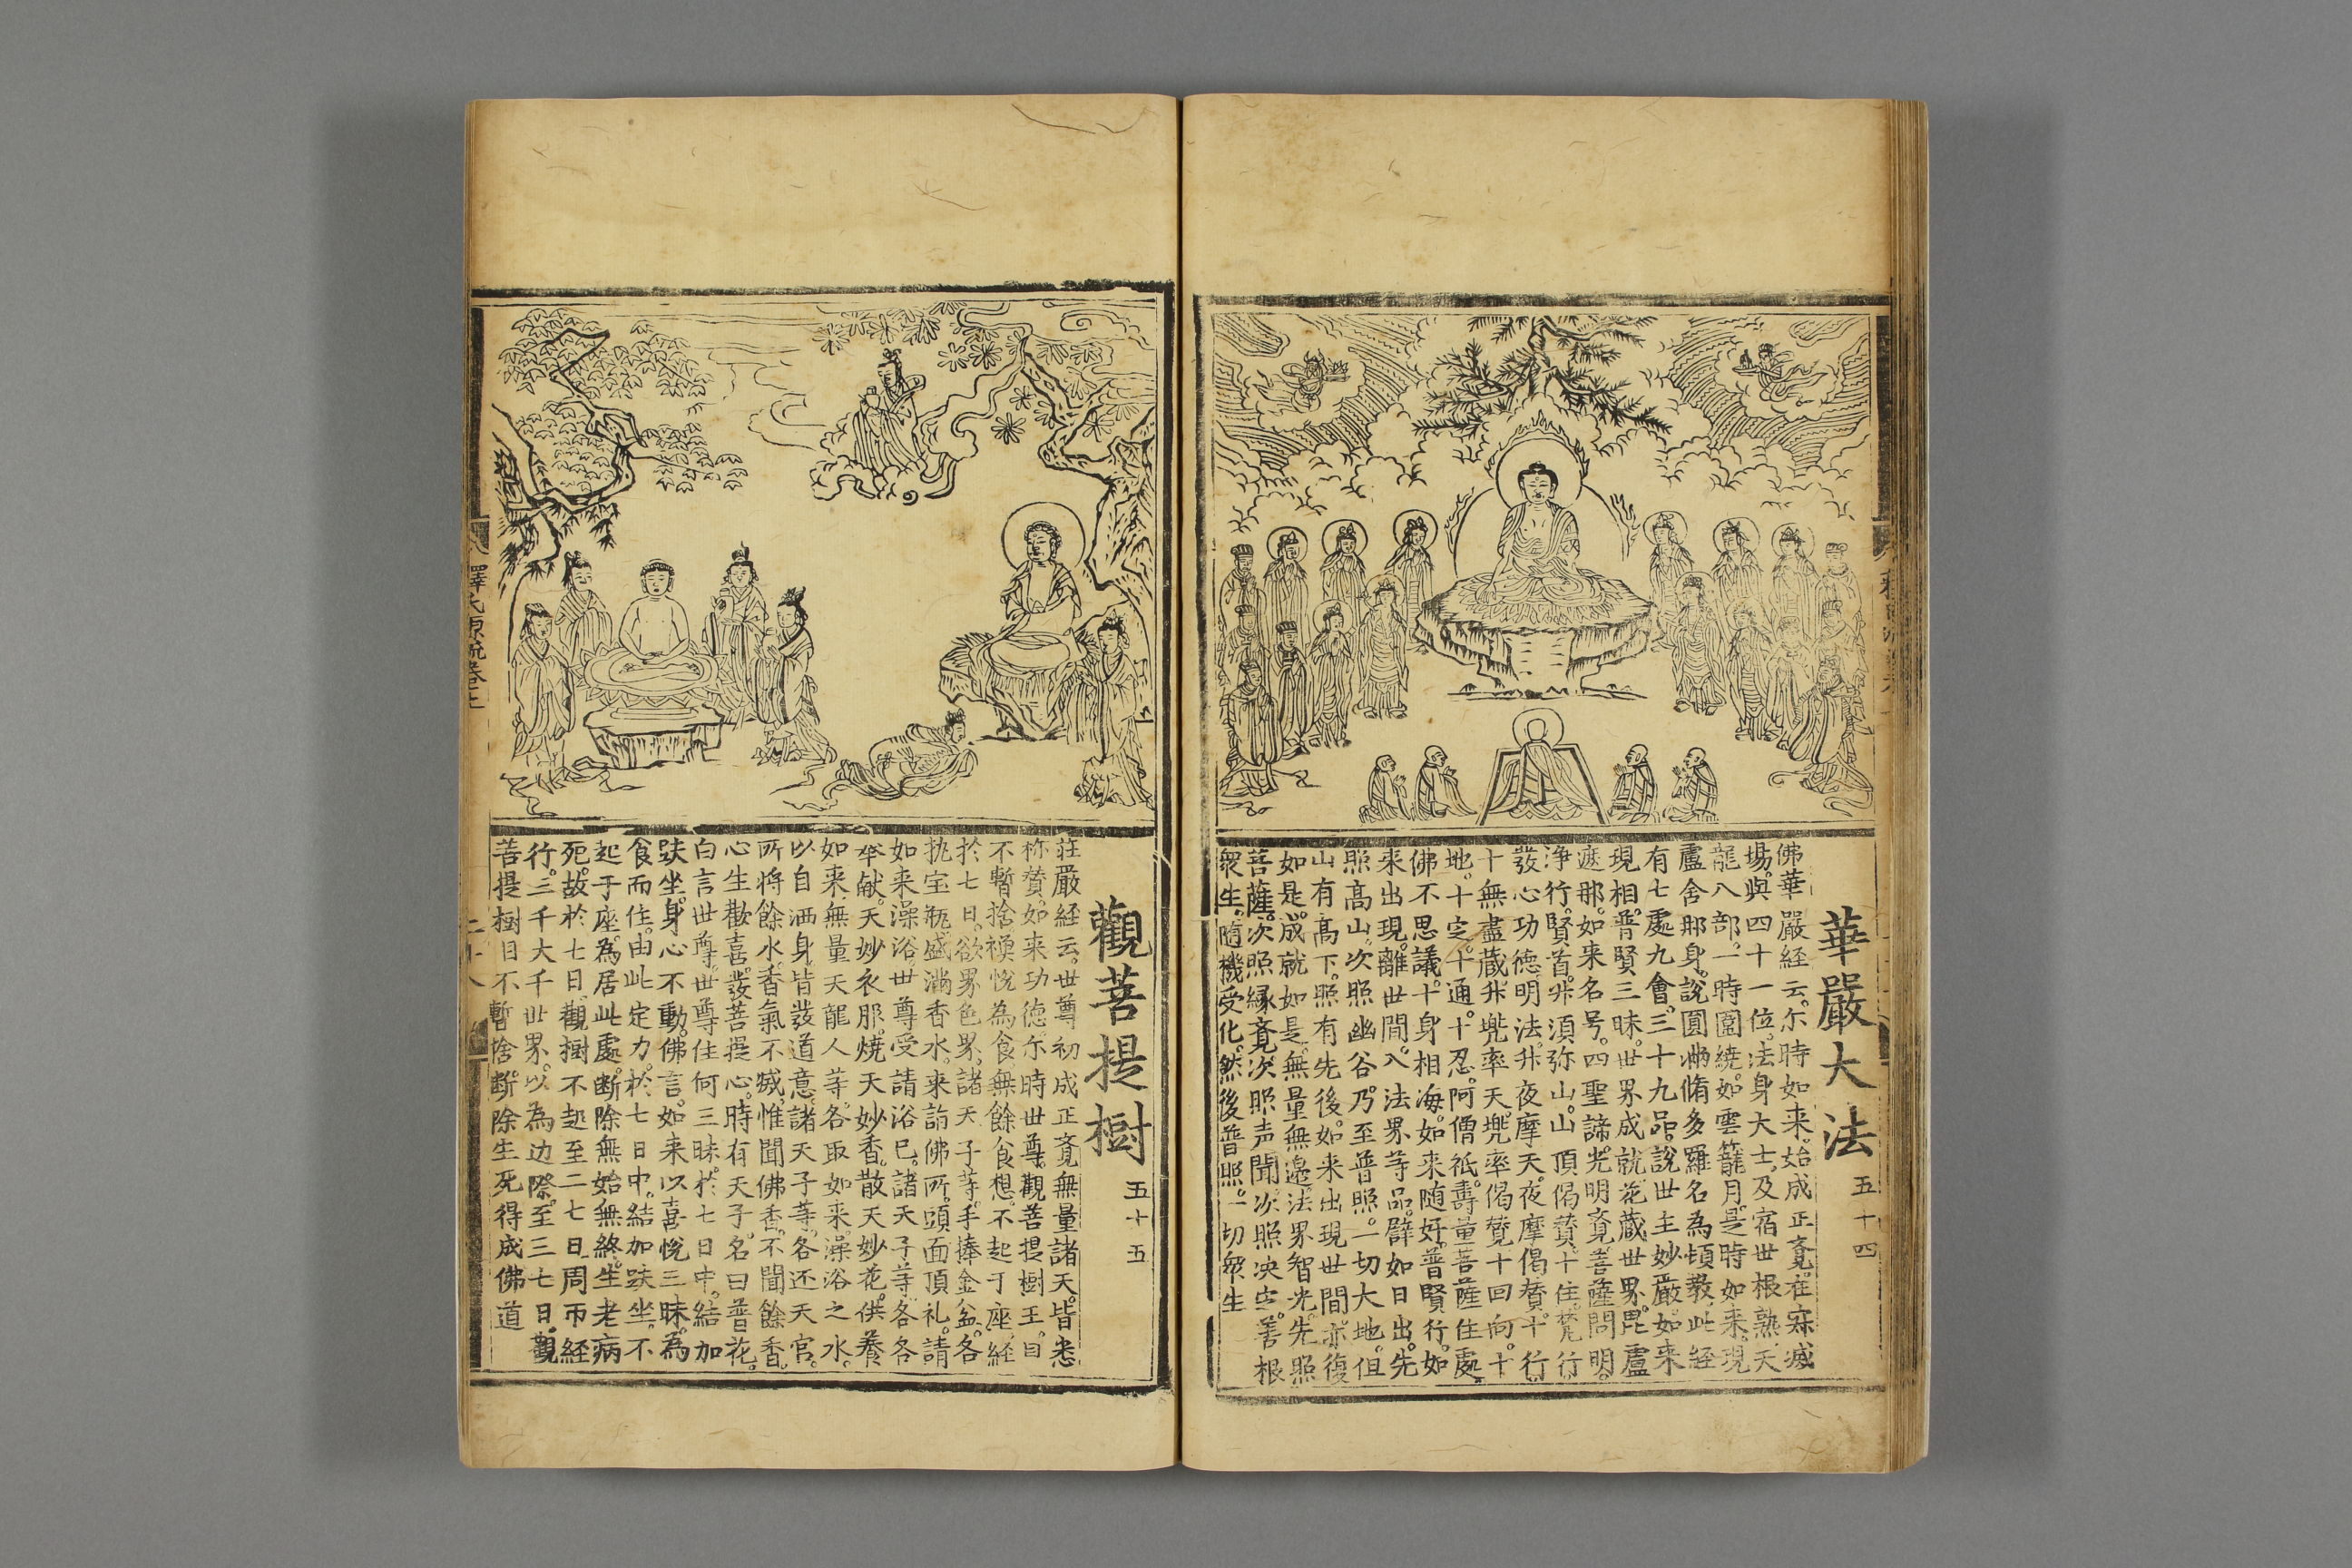 華嚴大法 五十四
佛華嚴経云尓時如来始成正覔在寂滅
場與四十一位法身大士及宿世根熟天
龍八部一時圍繞如雲籠月是時如来現
盧舍那身說圓滿脩多羅名為頓教此経
有七處九會三十九品說世主妙嚴如来
現相普賢三昧世界成就花蔵世界毘盧
遮那如来名号四聖諦光明覔菩薩問明
浄行賢首升須弥山山頂偈賛十住梵行
發心功徳明法升夜摩天夜摩偈賛十行
十無盡蔵升兠率天兠率偈賛十回向十
地十定十通十忍阿僧祇壽量菩薩住處
佛不思議十身相海如来随好普賢行如
来出現離世間入法界等品譬如日出先
照髙山次照幽谷乃至普照一切大地但
山有髙下照有先後如来出現世間亦復
如是成就如是無量無邊法界智光先照
菩薩次照縁覔次照声聞次照决㝎善根
衆生随機受化然後普照一切衆生
觀菩提樹 五十五
莊嚴経云世尊初成正覔無量諸天皆悉
称賛如来功徳尓時世尊觀菩提樹王目
不暫捨禪悅為食無餘食想不起于座経
於七日欲界色界諸天子等手捧金盆各
执宝瓶盛滿香水来詣佛所頭面頂礼請
如来澡浴世尊受請浴已諸天子等各各
奉献天妙衣服燒天妙香散天妙花供養
如来無量天龍人等各取如来澡浴之水
以自洒身皆發道意諸天子等各还天宫
所将餘水香氣不滅惟聞佛香不聞餘香
心生歡喜發菩提心時有天子名曰普花
白言世尊世尊住何三昧於七日中結加
趺坐身心不動佛言如来以喜悅三昧為
食而住由此定力於七日中結加趺坐不
起于座為居此處断除無始無終生老病
死故於七日觀樹不起至二七日周帀経
行三千大千世界以為边際至三七日觀
菩提樹目不暫捨断除生死得成佛道
釋氏源流卷之上